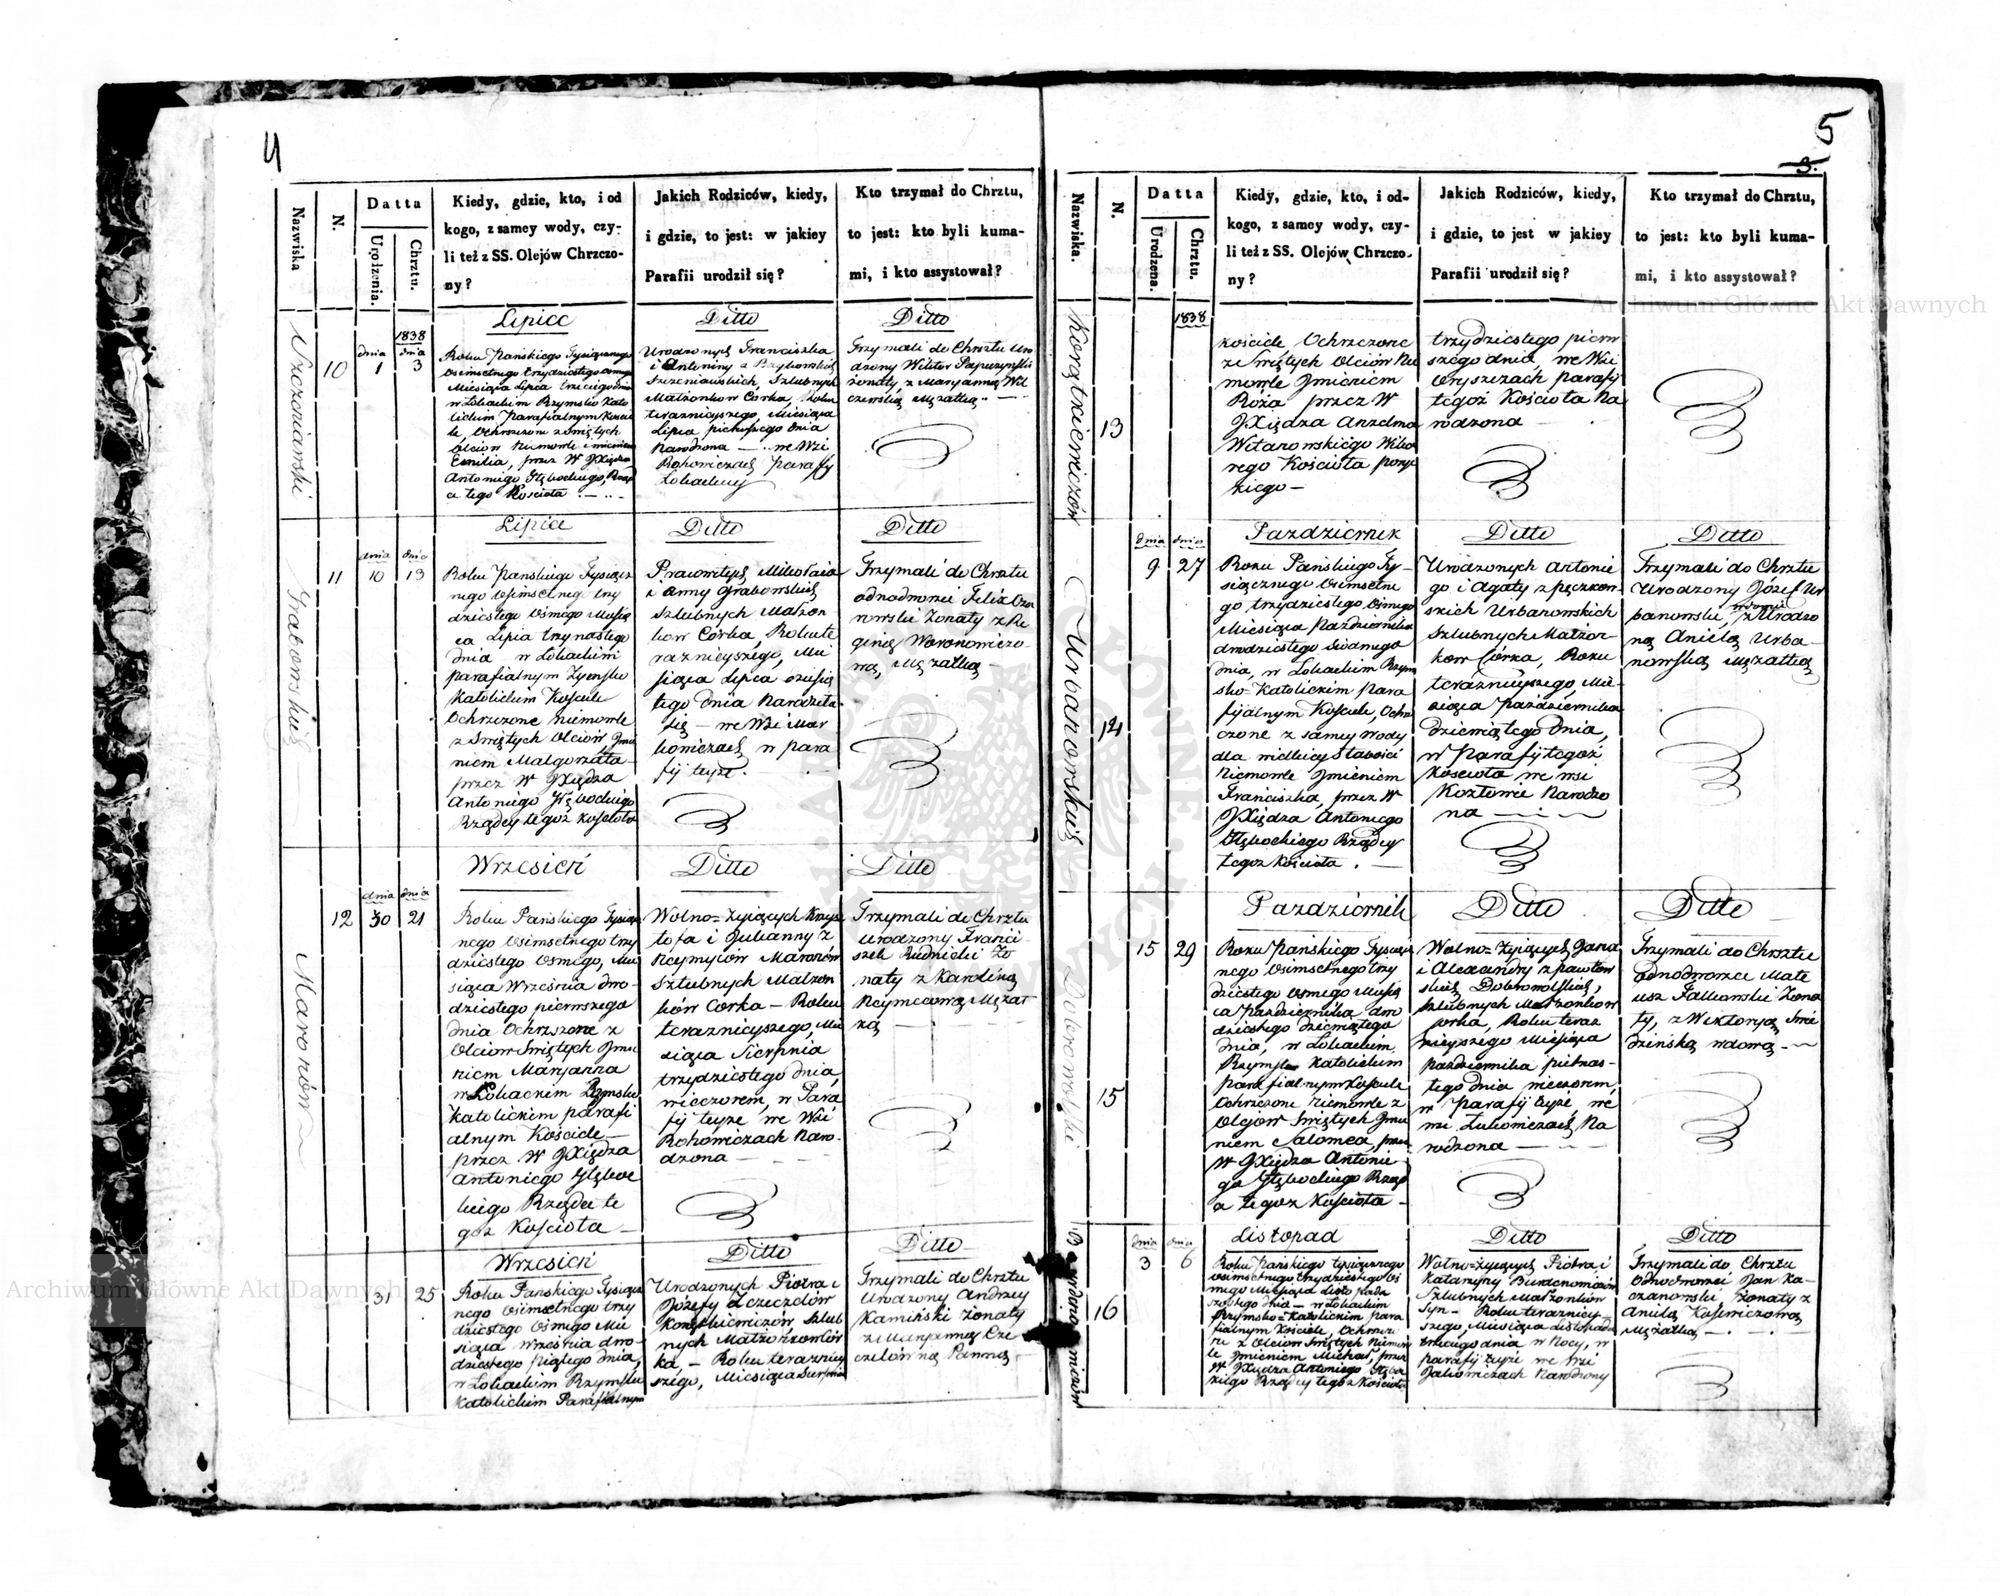 4
Nazwiska
N.
Datta
Urodzenia.
Chrztu.
Kiedy, gdzie, kto, i od
kogo, z samey wody, czy-
li też z SS. Olejów Chrzczo-
ny?
Jakich Rodziców, kiedy,
i gdzie, to jest: w jakiey
Parafii urodził się?
Kto trzymał do Chrztu,
to jest: kto byli kuma-
mi, i kto assystował?
10
dnia
1
1838
dnia
3
Lipiec
Roku Pańskiego Tysiącznego
Osimsetnego trzydziestego osmego
Miesiąca Lipca trzeciego dnia
w Łohackim Rzymsko Kato
lickim Parafialnym Koscie
le, Ochrzczone z Swiętych
Oleiow Niemowle imieniem
Emilia, przez W JXiędza
Antoniego Głębockiego, Rząd
ca tego Kosciola
Ditto
Urodzonych Franciszka
i Antoniny z
Szlubnych
Małżonkow Corka, Roku
teraznieyszego, Miesiąca
Lipca pierwszego dnia
Narodzona — we Wsi
Rohowiczach Parafy
Łohackiey
Ditto
Trzymali do Chrztu Uro
dzony Wiktor
żonaty z Maryanną Wil
czewską Mężatką
Grabowskich
11
dnia
10
dnia
13
Lipiec
Roku Pańskiego Tysiącz
nego Osimsetnego trzy
dziestego Osmego Miesią
ca Lipca trzynastego
dnia w Łohackim
parafialnym Rzymsko
Katolickim Kosciele
Ochrzczone niemowle
z Swiętych Oleiów, Imie
niem Małgorzata
przez W JXiędza
Antoniego Głębockiego
Rządcy tegoż Kosciola
Ditto
Pracowitych Mikołaia
i Anny Grabowskich
Szlubnych Małżon
kow Córka Roku te
raznieyszego, Mie
siąca Lipca dziesią
tego dnia Narodziła
się — we Wsi Mar
kowiczach w para
fij teyże.
Ditto
Trzymali do Chrztu
odnodworcy Felix
Żonaty z Re
giną Woronowiczo
wą, Mężatką
Maronów
12
dnia
30
dnia
21
Wrzesień
Roku Pańskiego Tysiącz
nego Osimsetnego trzy
dziestego Osmego, Mie
siąca Września dwu-
dziestego pierwszego
dnia Ochrzczone z
Oleiow Swiętych Imie
niem Maryanna
w Łohackim Rzymsko
Katolickim parafi
alnym Kościele
przez W JXiędza
Antoniego Głęboc
kiego Rządce te
goż Kościola
Ditto
Wolno=Zyiących Krzysz
tofa i Julianny z
Neymiców Maronów
Szlubnych Małżon
ków Corka — Roku
teraznieyszego, Mie
siąca Sierpnia
trzydziestego dnia,
wieczorem, w Para
fij teyże we Wsi
Rohowiczach Naro-
dzona
Ditto
Trzymali do Chrztu
urodzony Franci
szek Rudnicki Żo
naty z Karoliną
Neymicową Mężat
ką
31
25
Wrzesień
Roku Pańskiego Tysiącz
nego Osimsetnego trzy
dziestego Osmego Mie
siąca Września dwu-
dziestego piątego dnia,
w Łohackim Rzymsko
Katolickim Parafialnym
Ditto
Urodzonych Piotra i
Józefy z Czeczotów
Korzątkiewiczów Szlub
nych Małżonków Cór
ka, — Roku terazniey
szego, Miesiąca Sierpnia
Ditto
Trzymali do Chrztu
Urodzony Andrzey
Kaminski żonaty
z Maryanną Cze
czotówną Panną
5
3.
Nazwiska.
N.
Datta
Urodzena.
Chrztu.
Kiedy, gdzie, kto, i od-
kogo, z samey wody, czy-
li też z SS. Olejów Chrzczo-
ny?
Jakich Rodziców, kiedy,
i gdzie, to jest w jakiey
Parafii urodził się?
Kto trzymał do Chrztu,
to jest: kto byli kuma-
mi, i kto assystował?
Korzątkiewiczów
13
1838
kościele Ochrzczone
ze Swiętych Oleiów Nie
mowle Imieniem
Róża przez W
JXiędza Anzelma
Witanowskiego Wika
rego Kościola
trzydziestego pierw
szego dnia, we Wsi
Parafy
tegoż Kościola Na
rodzona
Urbanowskich
14
dnia
9
dnia
27
Pazdziernik
Roku Pańskiego Ty-
siącznego Osimsetne
go trzydziestego Osmego
Miesiąca Pazdziernika
dwudziestego siodmego
dnia, w Łohackim Rzym
sko-Katolickim Para
fijalnym Kosciele, Ochrz
czone z samey wody
dla wielkiey słabości
Niemowle Imieniem
Franciszka, przez W
JXiędza Antoniego
Głębockiego Rządcy
tegoż Kościola.
Ditto
Urodzonych Antonie
go i Agaty z
Urbanowskich
Szlubnych Małżon-
kow Córka, Roku
teraznieyszego, Mie-
siąca Październiká
dziewiątego dnia,
w Parafij tegoż
Kościola we wsi
Kozłowie Narodzo
na
Ditto
Trzymali do Chrztu
Urodzony Józef Ur
banowski, wdowiec z Urodzo
ną Anielą Urba-
nowską Mężatką
Dobrowolski
15
15
29
Październik
Roku Pańskiego Tysiącz
nego Osimsetnego trzy
dziestego Osmego Miesią
ca Października dwu
dziestego dziewiątego
dnia, w Łohackim
Rzymsko Katolickim
parafialnym Kosciele
Ochrzczone niemowle z
Oleiow Swiętych Imie
niem Salomea, przez
W JXiędza Antonie
go Głębockiego Rządc
a tegoż Kościola
Ditto
Wolno=Zyiących Jana
i Alexandry z Pawłow
skich Dobrowolskich,
Szlubnych Małżonkow
Corka, Roku teraz
nieyszego Miesiąca
Pazdziernika piętnas-
tego dnia wieczorem,
w Parafij teyże we
wsi Łukowiczach Na
rodzona
Ditto
Trzymali do Chrztu
Odnodworzec Mate
usz Falkowski Żona
ty, z Wiktoryą
wdową
16
dnia
3
dnia
6
Listopad
Roku Pańskiego tysiącznego
osimsetnego trzydziestego Os
mego Miesiąca Listopada
szostego dnia — w Łohackim
Rzymsko=Katolickim Para
fialnym Kościele, Ochrzczo
ne z Oleiow Swiętych Niemow
le Imieniem Michał, przez
W JXiędza Antoniego Głęboc
kiego Rządcy tegoż Kościola
Ditto
Wolno=Zyiących Piotra i
Katarzyny
Szlubnych Małżonków
Syn — Roku teraznieyy
szego, Miesiąca Listopada
trzeciego dnia w Nocy, w
parafij teyże we Wsi
Narodzony
Ditto
Trzymali do Chrztu
Odnodworzec Jan Ka-
czanowski, Żonaty z
Anielą
Mężatką
Archiwum Główne Akt Dawnych
Archiwum Główne Akt Dawnych